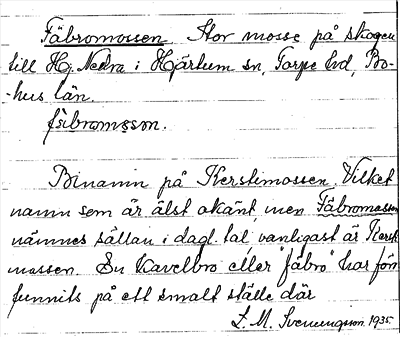 Fäbromossen Stor mosse på skogen
till Hg. Nedra i Hjärtum sn, Torpe hd, Bo-
-hus län.
fäbromsson.
Binamn på Kerstimossen. Vilket
namn som är älst okänt, men Fäbromossen
nämnes sällan i dagl. tal, vanligast är Kersti
mossen. En Kavelbro eller "fäbro" har för
funnits på ett smalt ställe där
L. M. Svenungsson 1935.